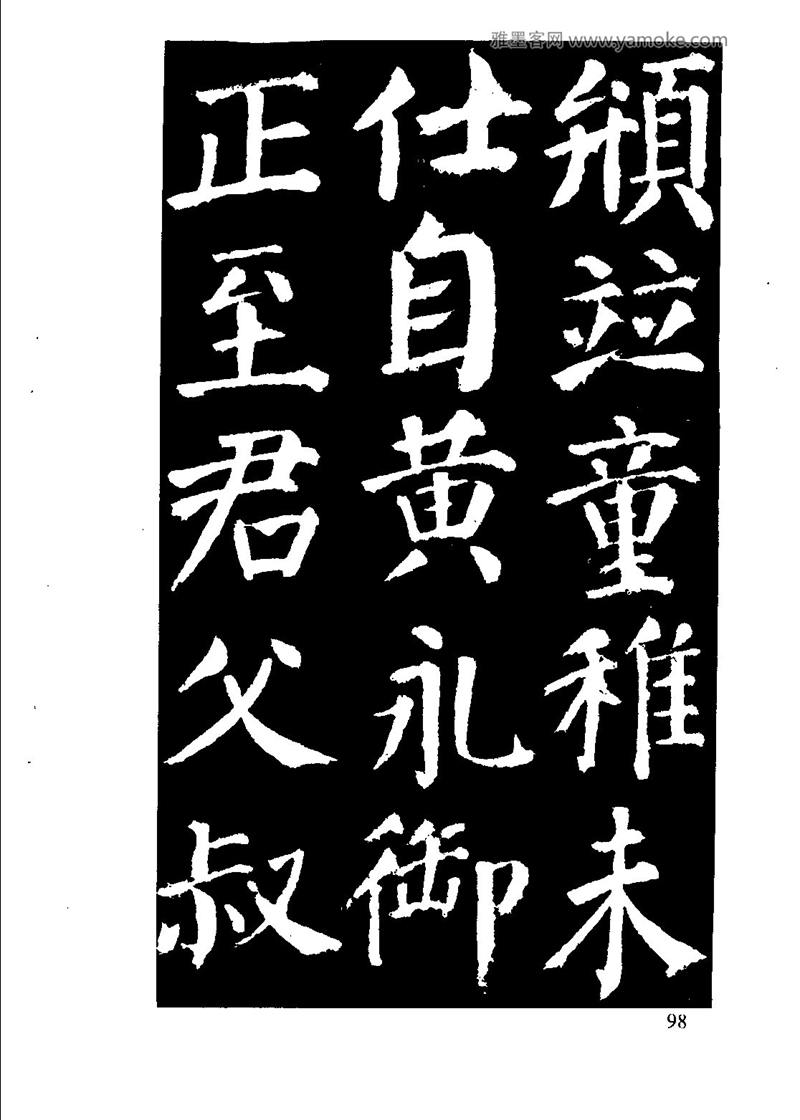 雅墨客网 www.yamoke.com
頩並童稚未
仕自黄永御
正至君父叔
98